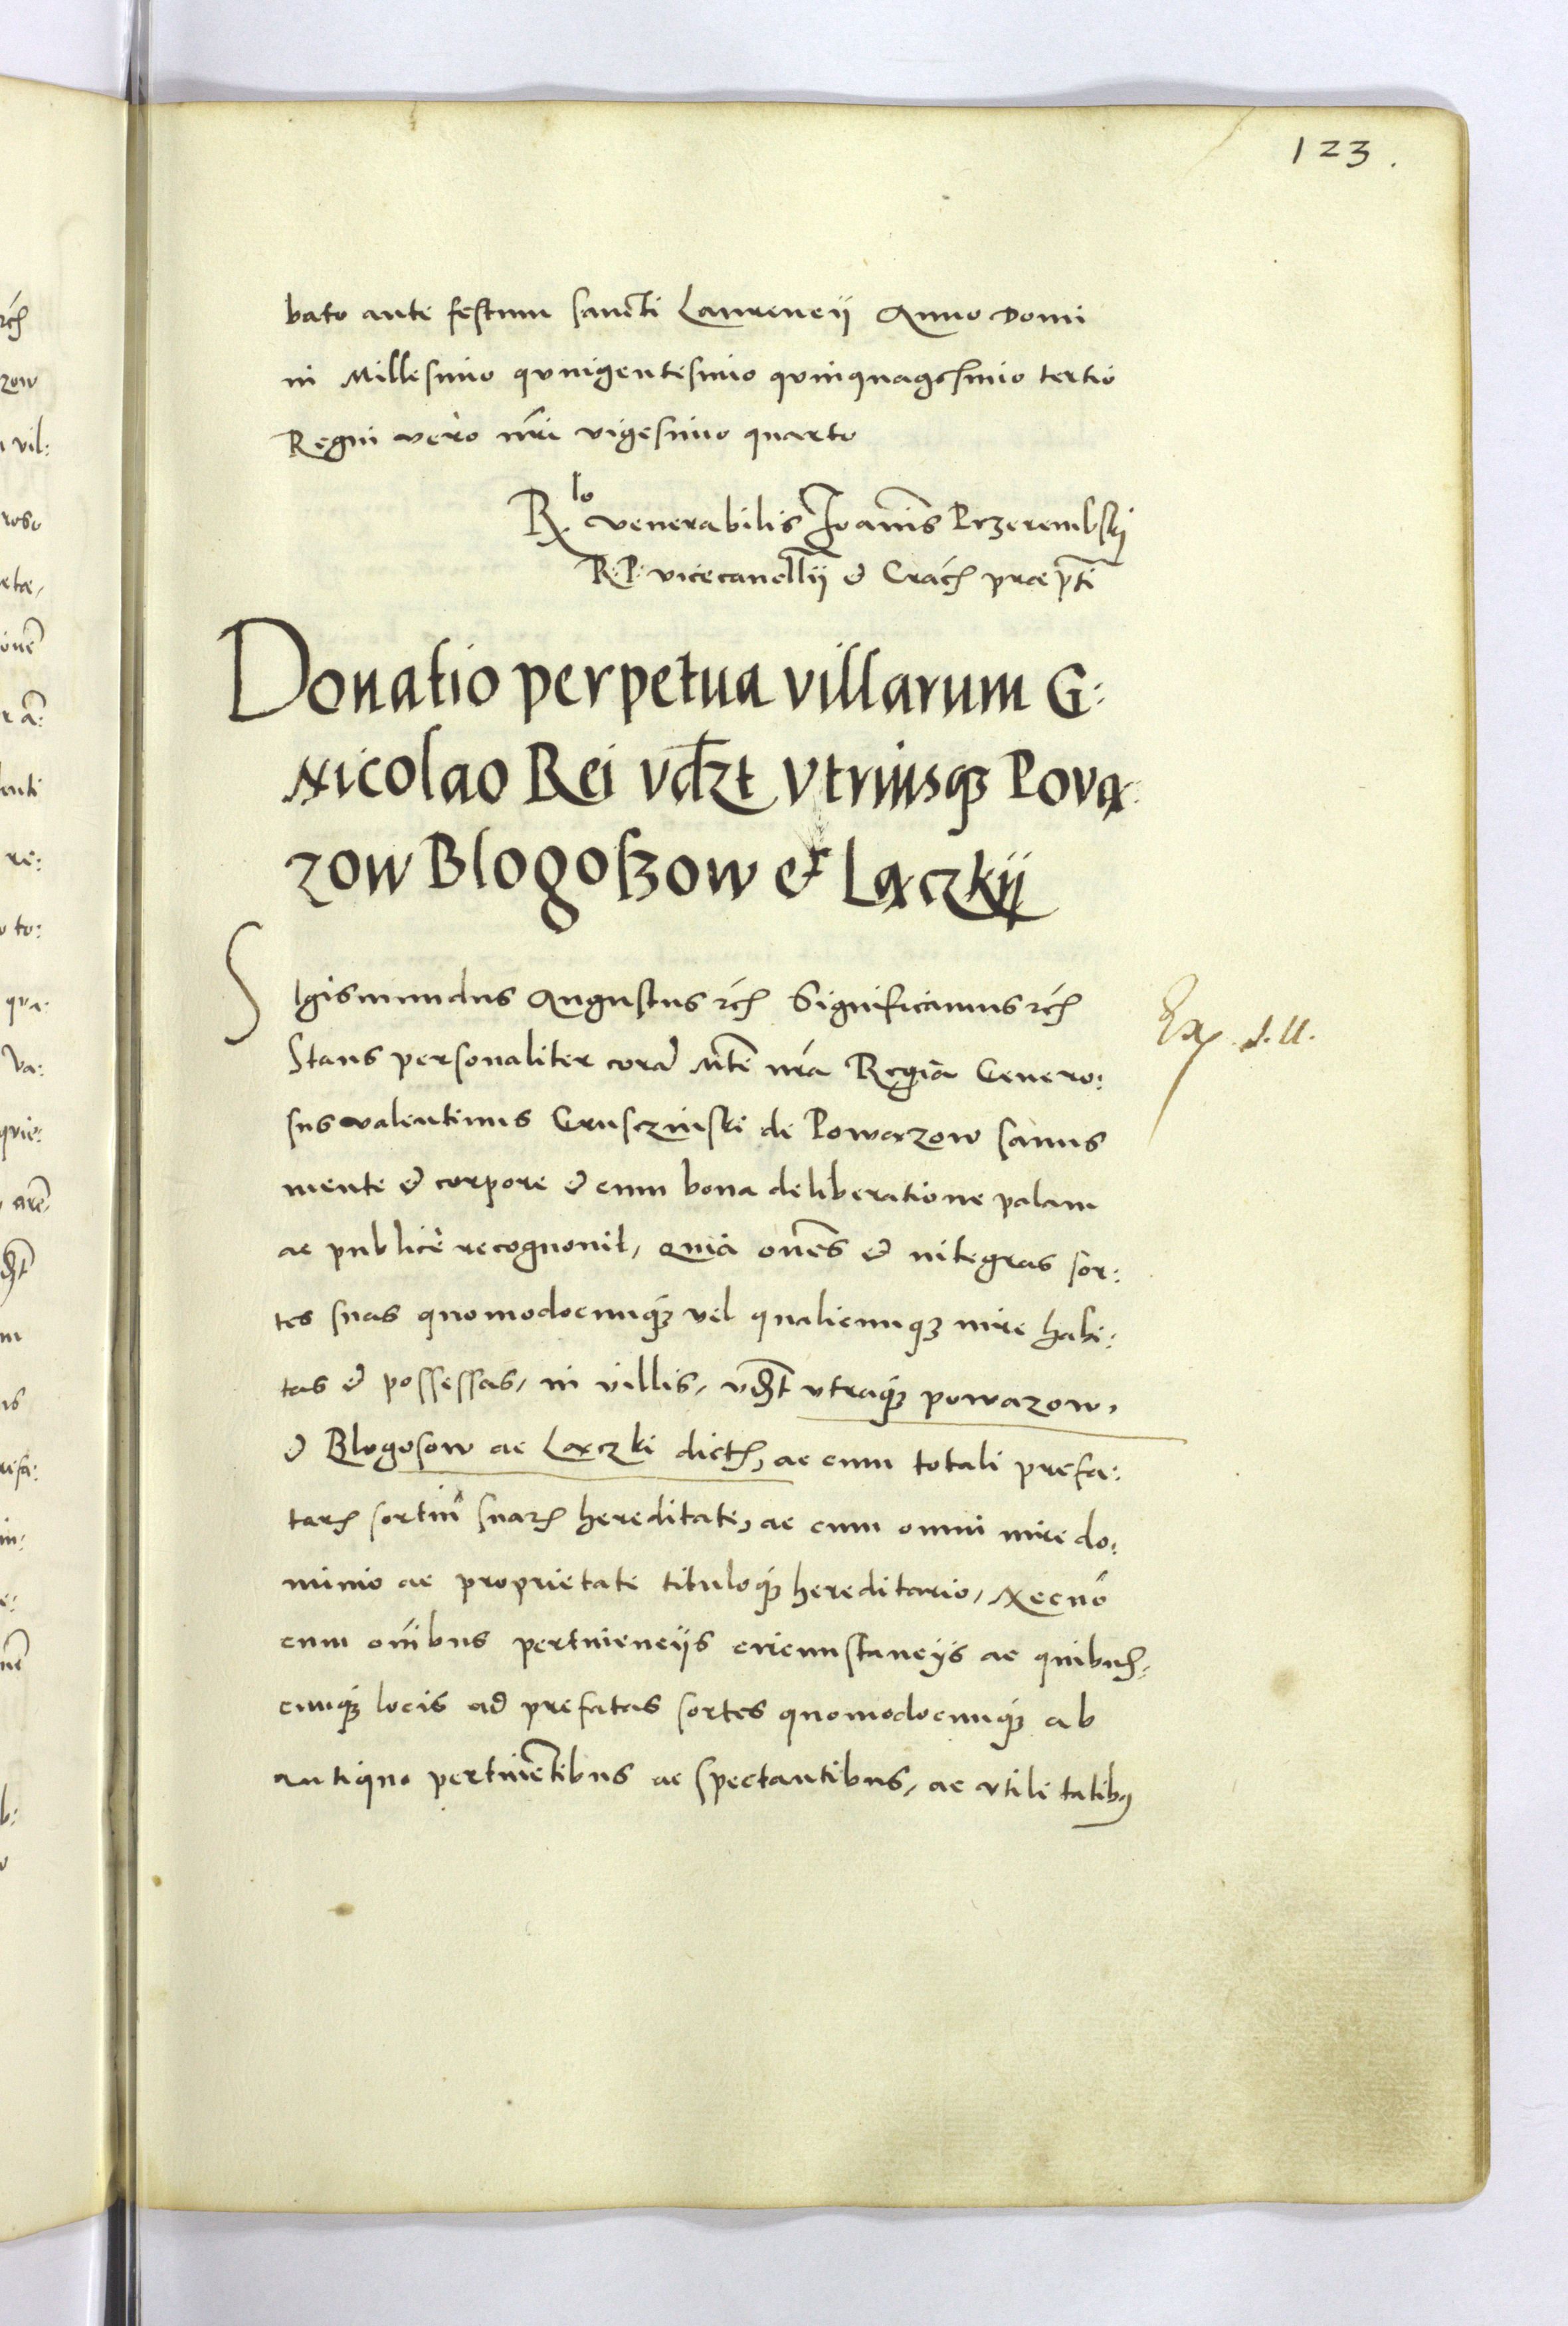 123.
bato ante festum sancti Laurencij Anno Domi
ni Millesimo quingentesimo quinquagesimo tertio
Regni vero nr̃i vigesimo quarto
R.lo venerabilis Joañis Przerembskij
R: P: vicecancellij & Crac̃ praep̃ti
Donatio perpetua villarum G:
Nicolao Rei vdzt vtriusq3 Pową:
zow Blogoszow et Lączkij
SIgismundus Augustus rc̃ Significamus rc̃
Ex. s. ll.
Stans personaliter corã Mte nr̃a Regia Genero:
sus valentinus Gruscziński de Powązow sanus
mente & corpore & cum bona deliberatione palam
ac publicè recognouit, quia oñes & integras sor:
tes suas quomodocunq3 vel qualicunq3 iure habi:
tas & possessas, in villis, vdzt vtraq3 powazow,
& Blogosow ac Lączki dict̃, ac cum totali prefa:
tar̃ sortiũ suar̃ hereditate, ac cum omni iure do:
minio ac proprietate tituloq3 hereditario, Necnõ
cum oñibus pertinencijs circumstancijs ac quibus:
cunq3 locis ad prefatas sortes quomodocunq3 ab
antiquo pertinẽtibus ac spectantibus, ac vtilitatib9